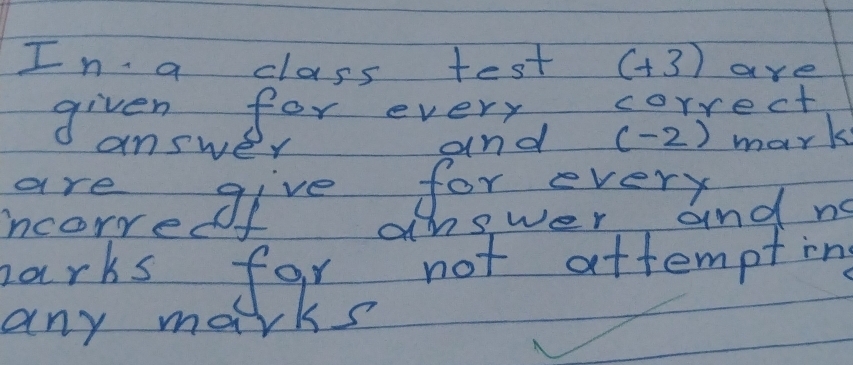 In. a class test (+3) are
given for every correct
answer and (-2) mark
are give for every
incorrect answer and no
marks for not attempting
any marks